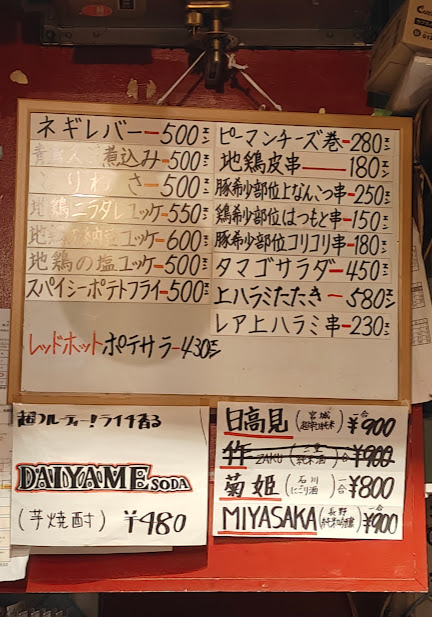 ネギレバー 500エン
煮込み 500エン
りわさ 500エン
地鶏ニラダレユッケ 550エン
地鶏 納豆ユッケ 600エン
地鶏の塩ユッケ 500エン
スパイシーポテトフライ 500エン
レッドホットポテサラ 430エン
ピーマンチーズ巻 280エン
地鶏皮串 180エン
豚希少部位上なんこつ串 250エン
鶏希少部位はつもと串 150エン
豚希少部位コリコリ串 180エン
タマゴサラダ 450エン
上ハラミたたき 580エン
レア上ハラミ串 230エン
超フルーティー!ライチ香る
DAIYAME SODA
(芋焼酎) ¥480
日高見 (宮城 超辛口純米) 一合 ¥900
作 ZAKU (三重 純米酒) 一合 ¥900
菊姫 (石川 にごり酒) 一合 ¥800
MIYASAKA (長野 純米吟醸) 一合 ¥900